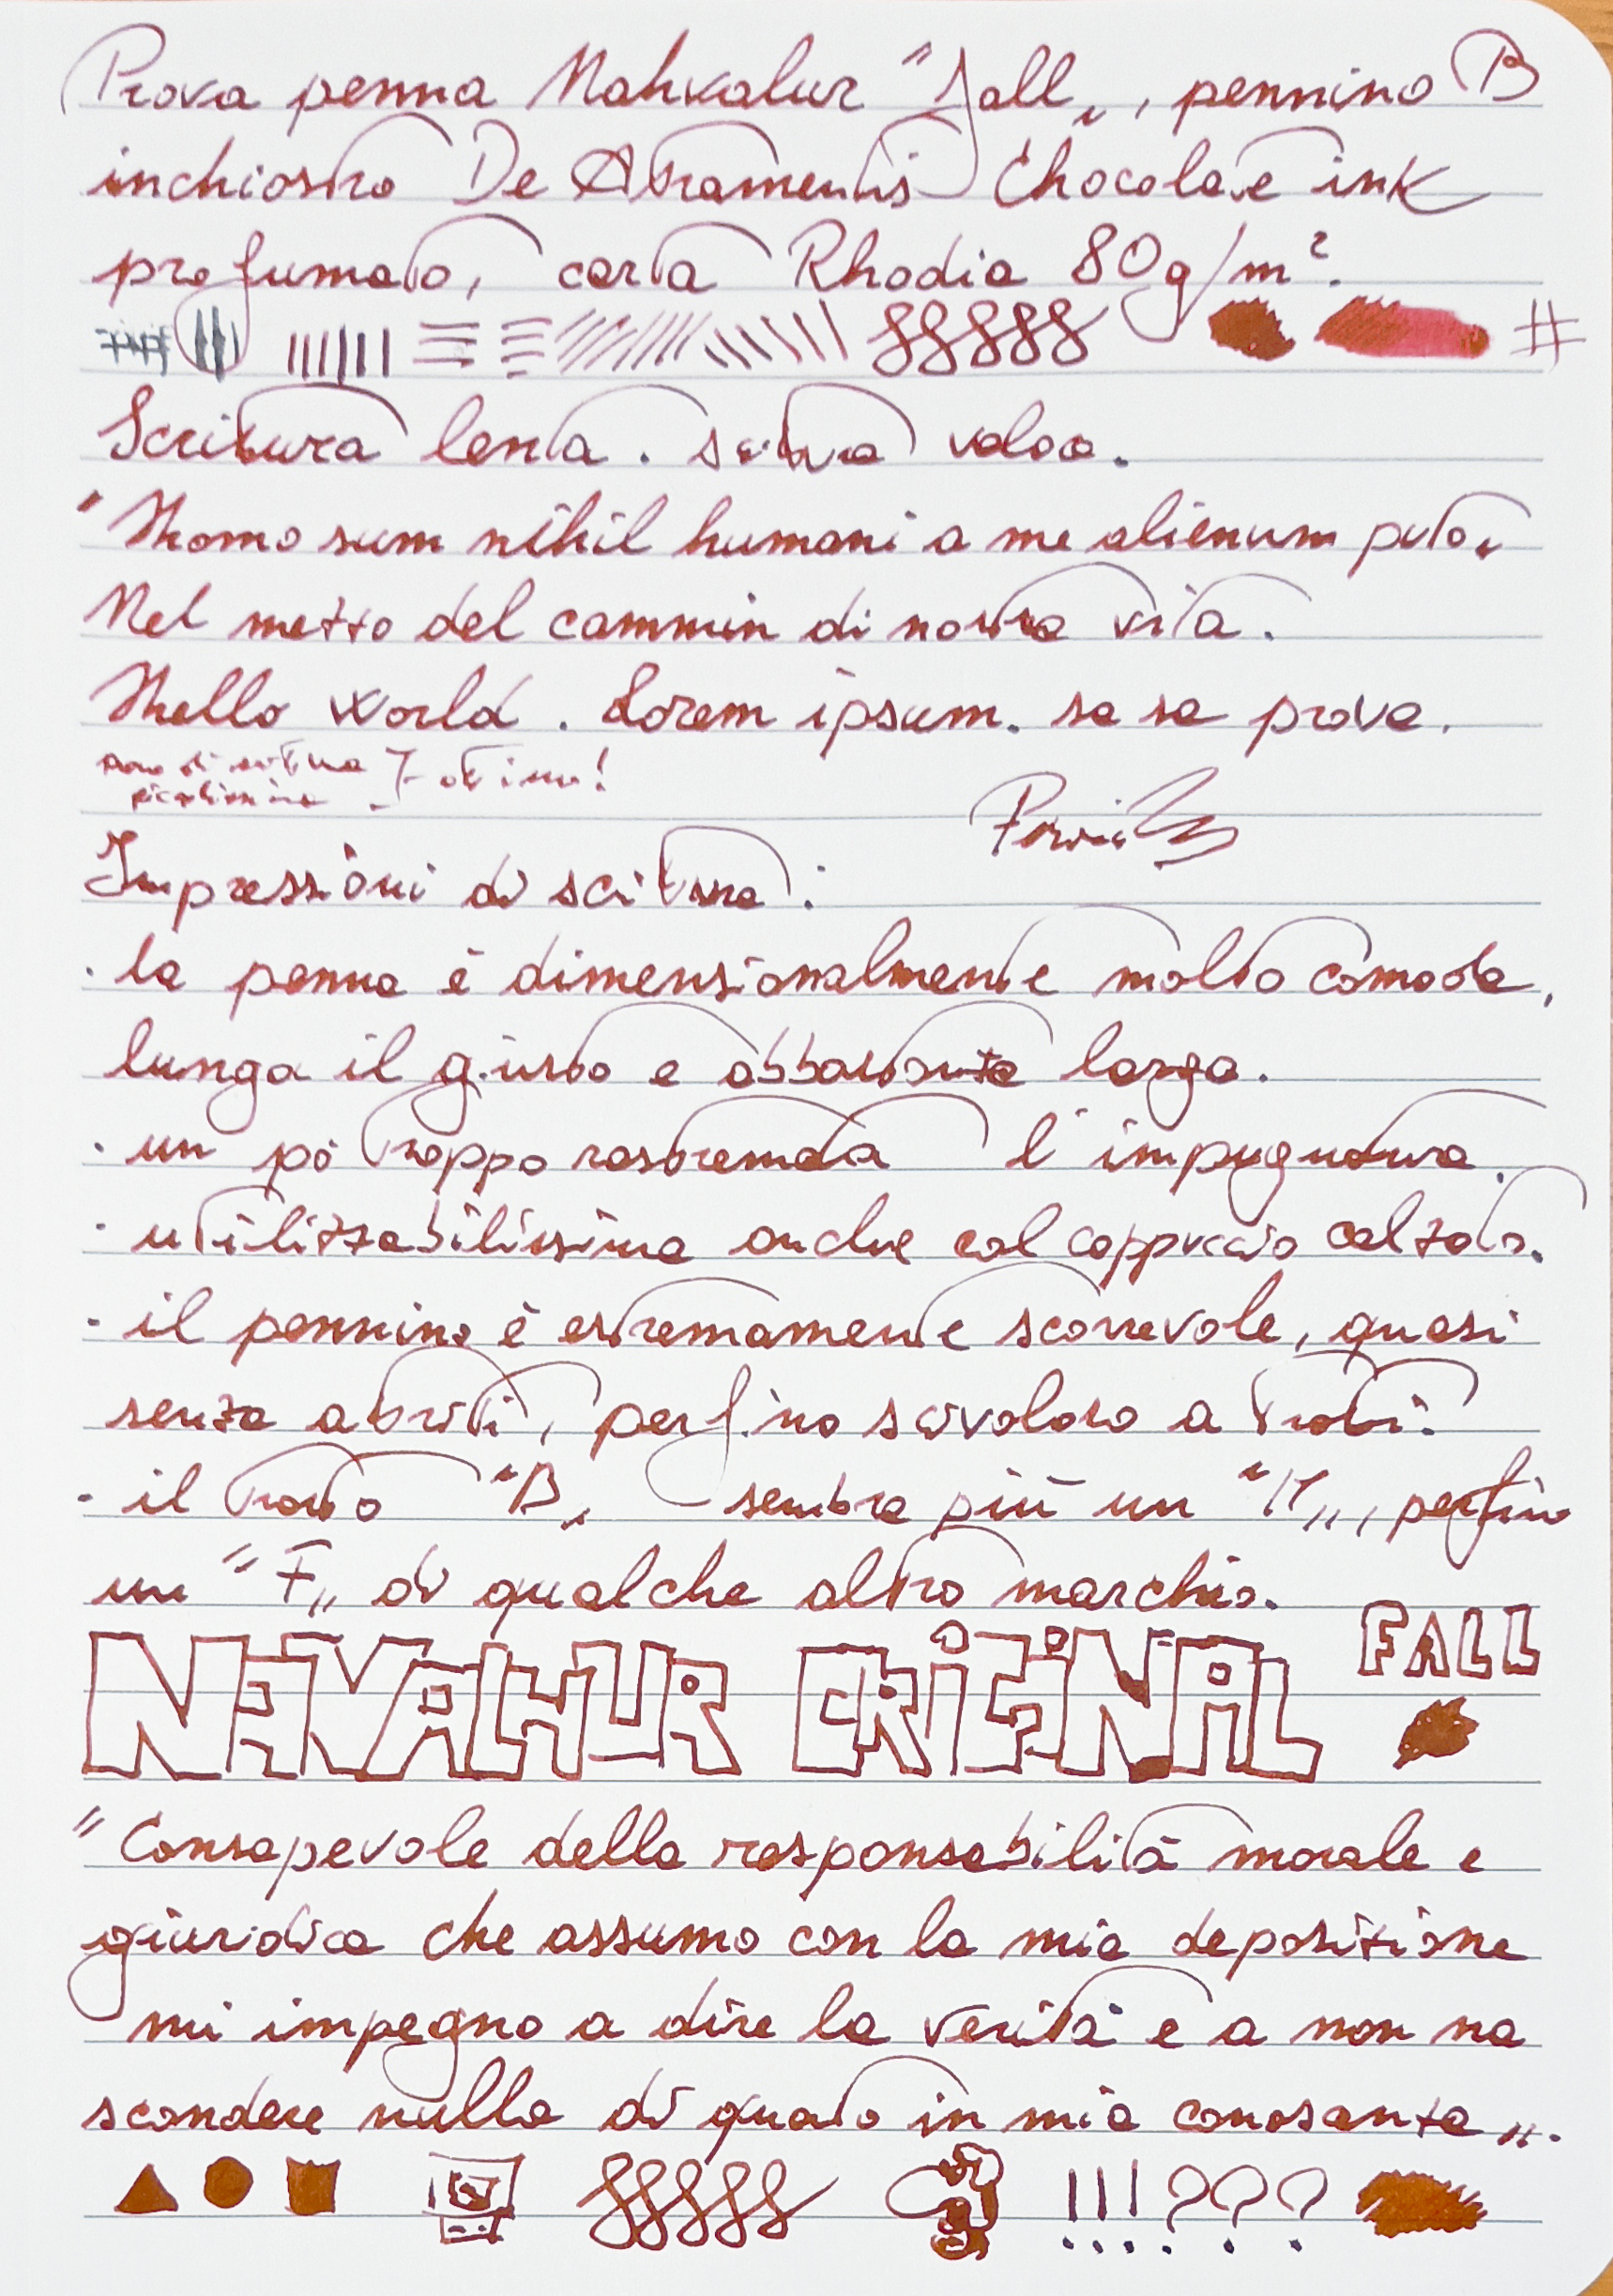 Prova penna Nahvalur "Fall", pennino B
inchiostro De Atramentis Chocolate ink
profumato, carta Rhodia 80g/m².
#
Scrittura lenta. veloce.
"Homo sum nihil humani a me alienum puto"
Nel mezzo del cammin di nostra vita.
Hello World. Lorem ipsum. sa sa prova.
ottimo!
Impressioni di scittura:
· la penna è dimensionalmente molto comoda,
lunga il giusto e abbastanza larga.
· un pò troppo rastremata l'impugnatura.
· utilizzabilissima anche col cappuccio calzato.
· il pennino è estremamente scorrevole, quasi
senza attriti, perfino scivoloso a tratti.
· il tratto "B" sembra più un "M", perfino
un "F" di qualche altro marchio.
FALL
NAVALHUR ORIGINAL
"Consapevole della responsabilità morale e
giuridica che assumo con la mia deposizione
mi impegno a dire la verità e a non na
scondere nulla di quato in mia conosanza".
!!! ???